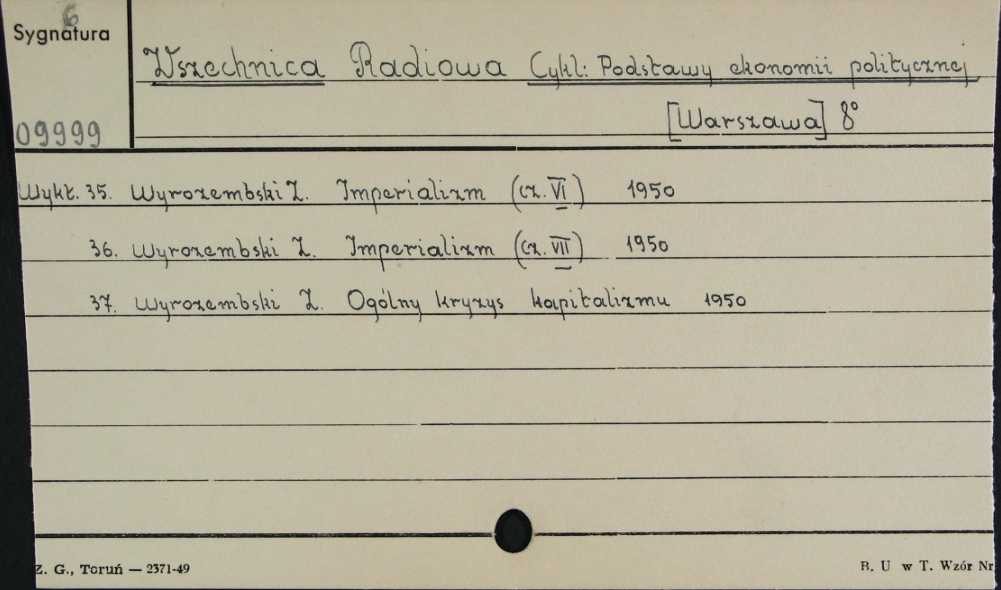 6
Sygnatura
Wszechnica Radiowa Cykl: Podstawy ekonomii politycznej
[Warszawa] 8°
09999
Wykł. 35. Wyrozembski Z. Imperializm (cz. VI) 1950
36. Wyrozembski Z. Imperializm (cz. VII) 1950
37. Wyrozembski Z. Ogólny kryzys kapitalizmu 1950
Z. G., Toruń — 2371-49
B. U w T. Wzór Nr